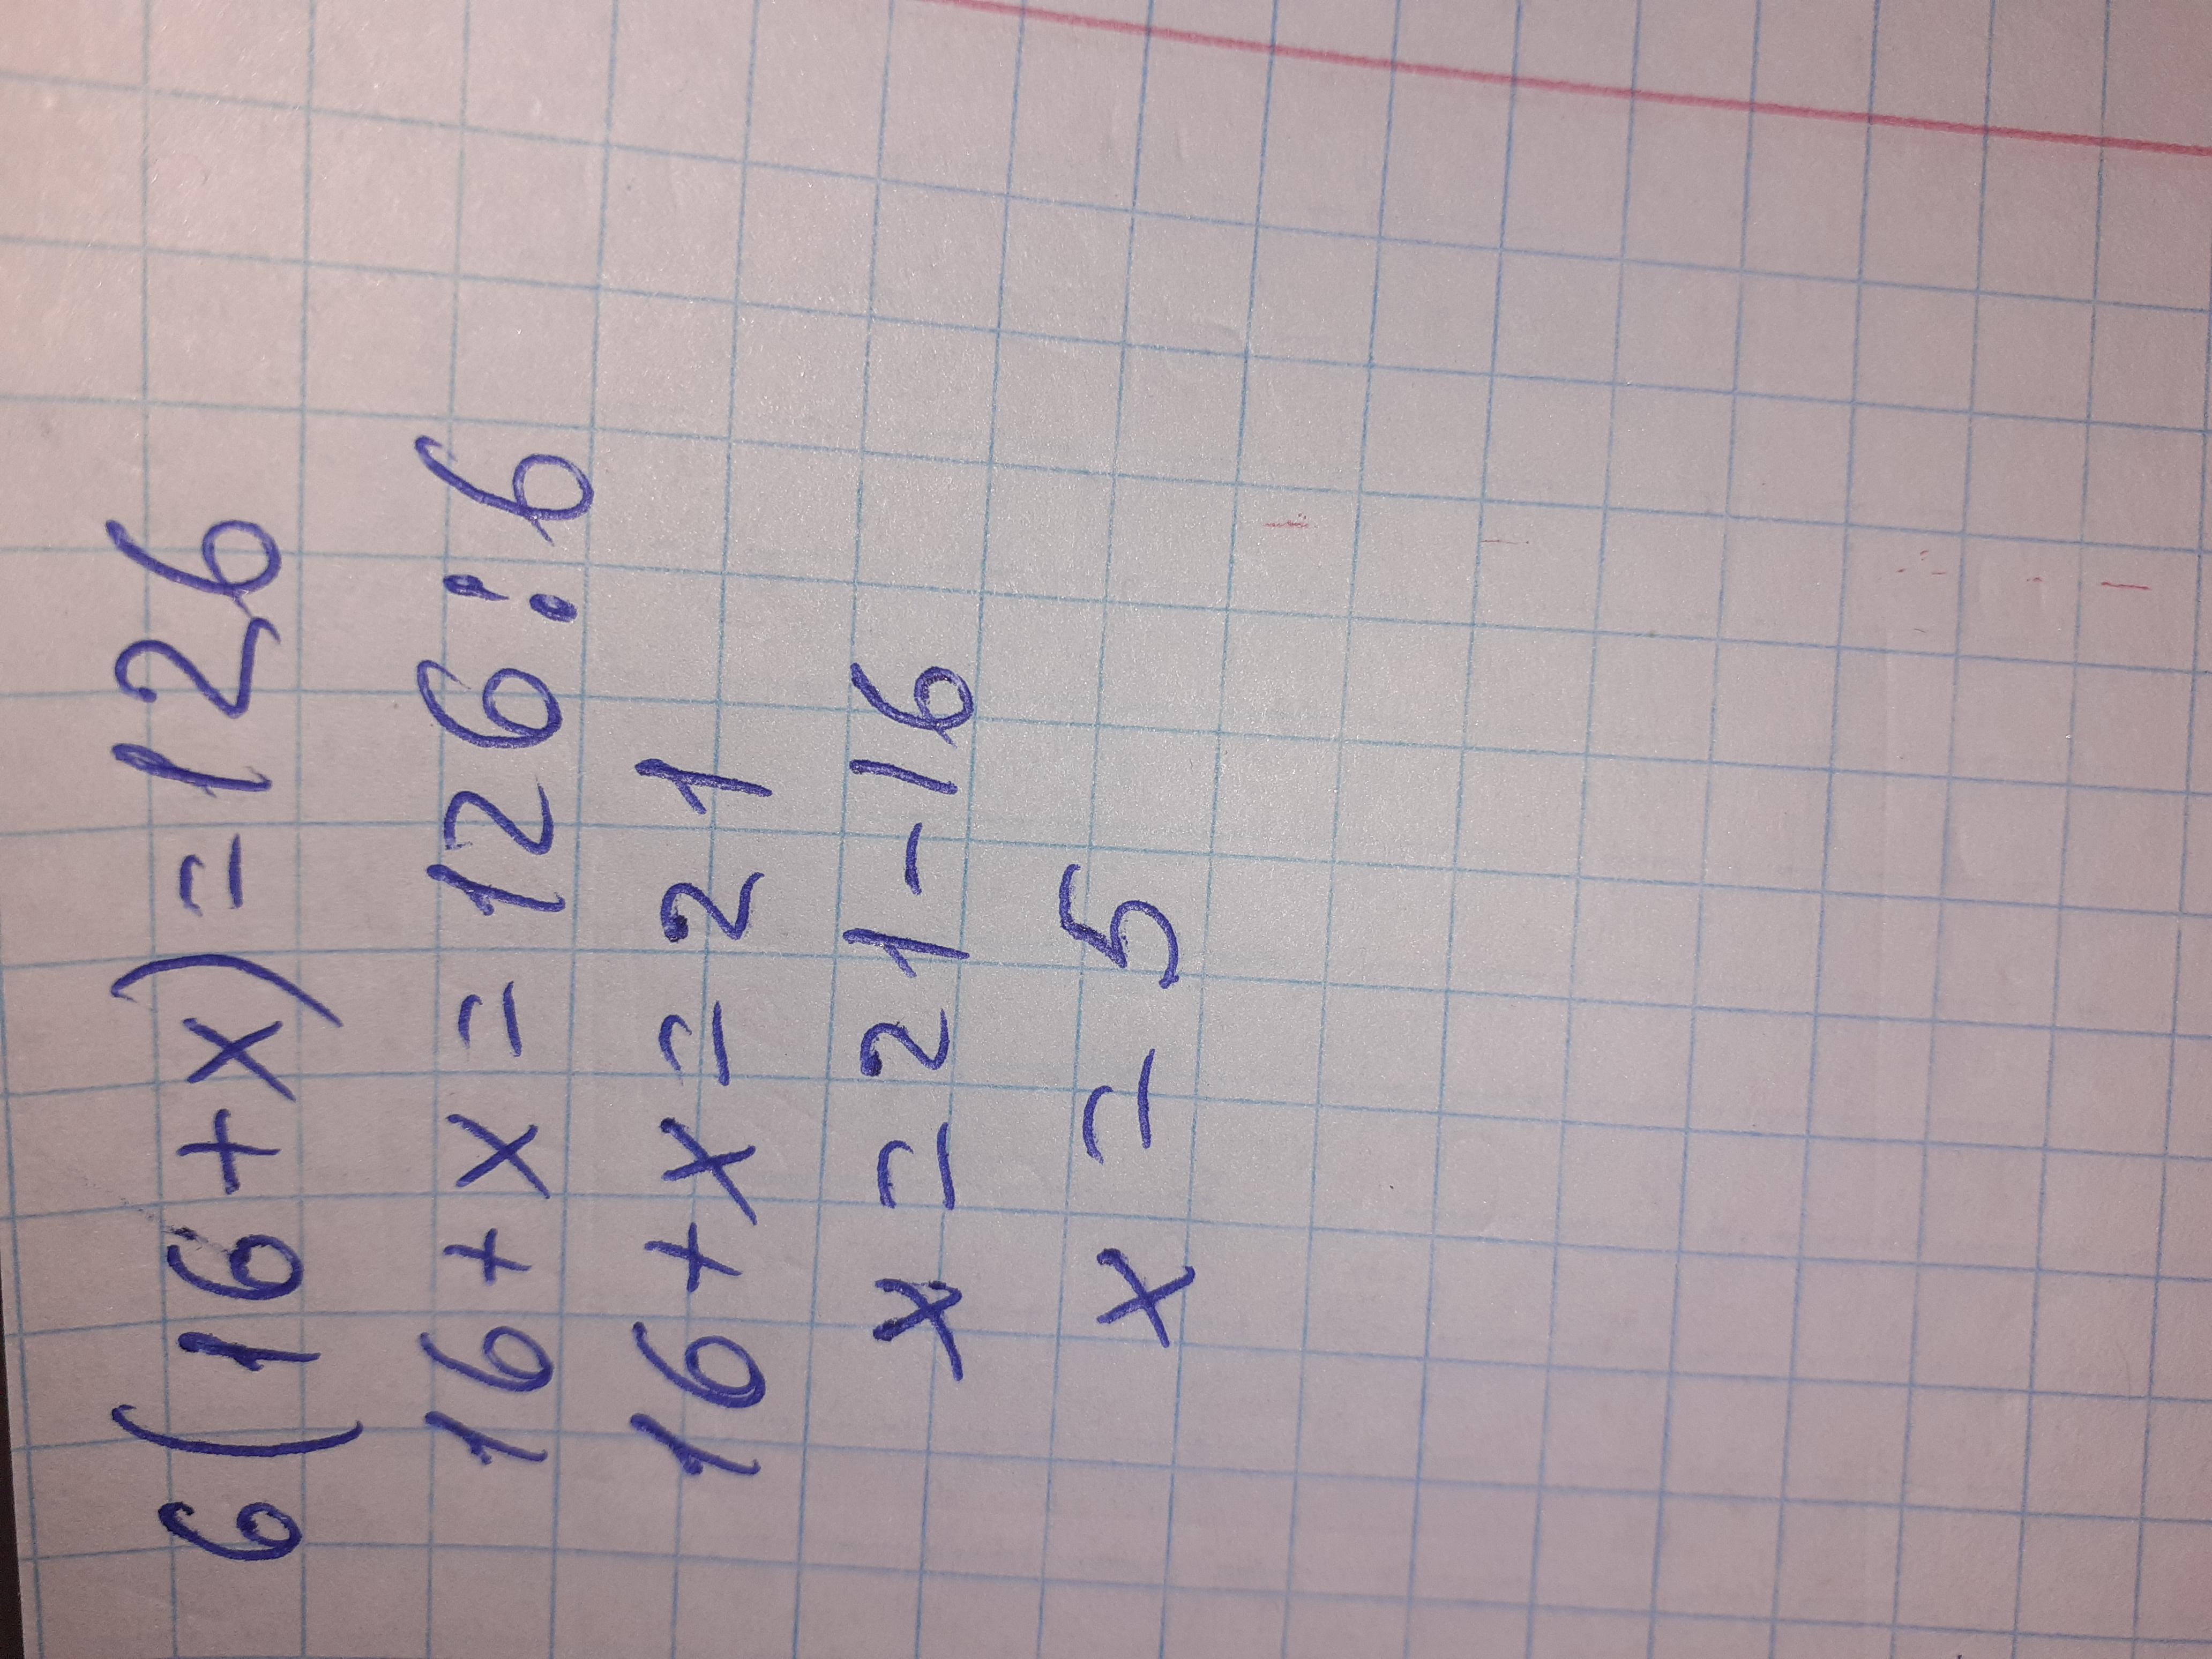 6(16+x)=126
16+x=126:6
16+x=21
x=21-16
x=5